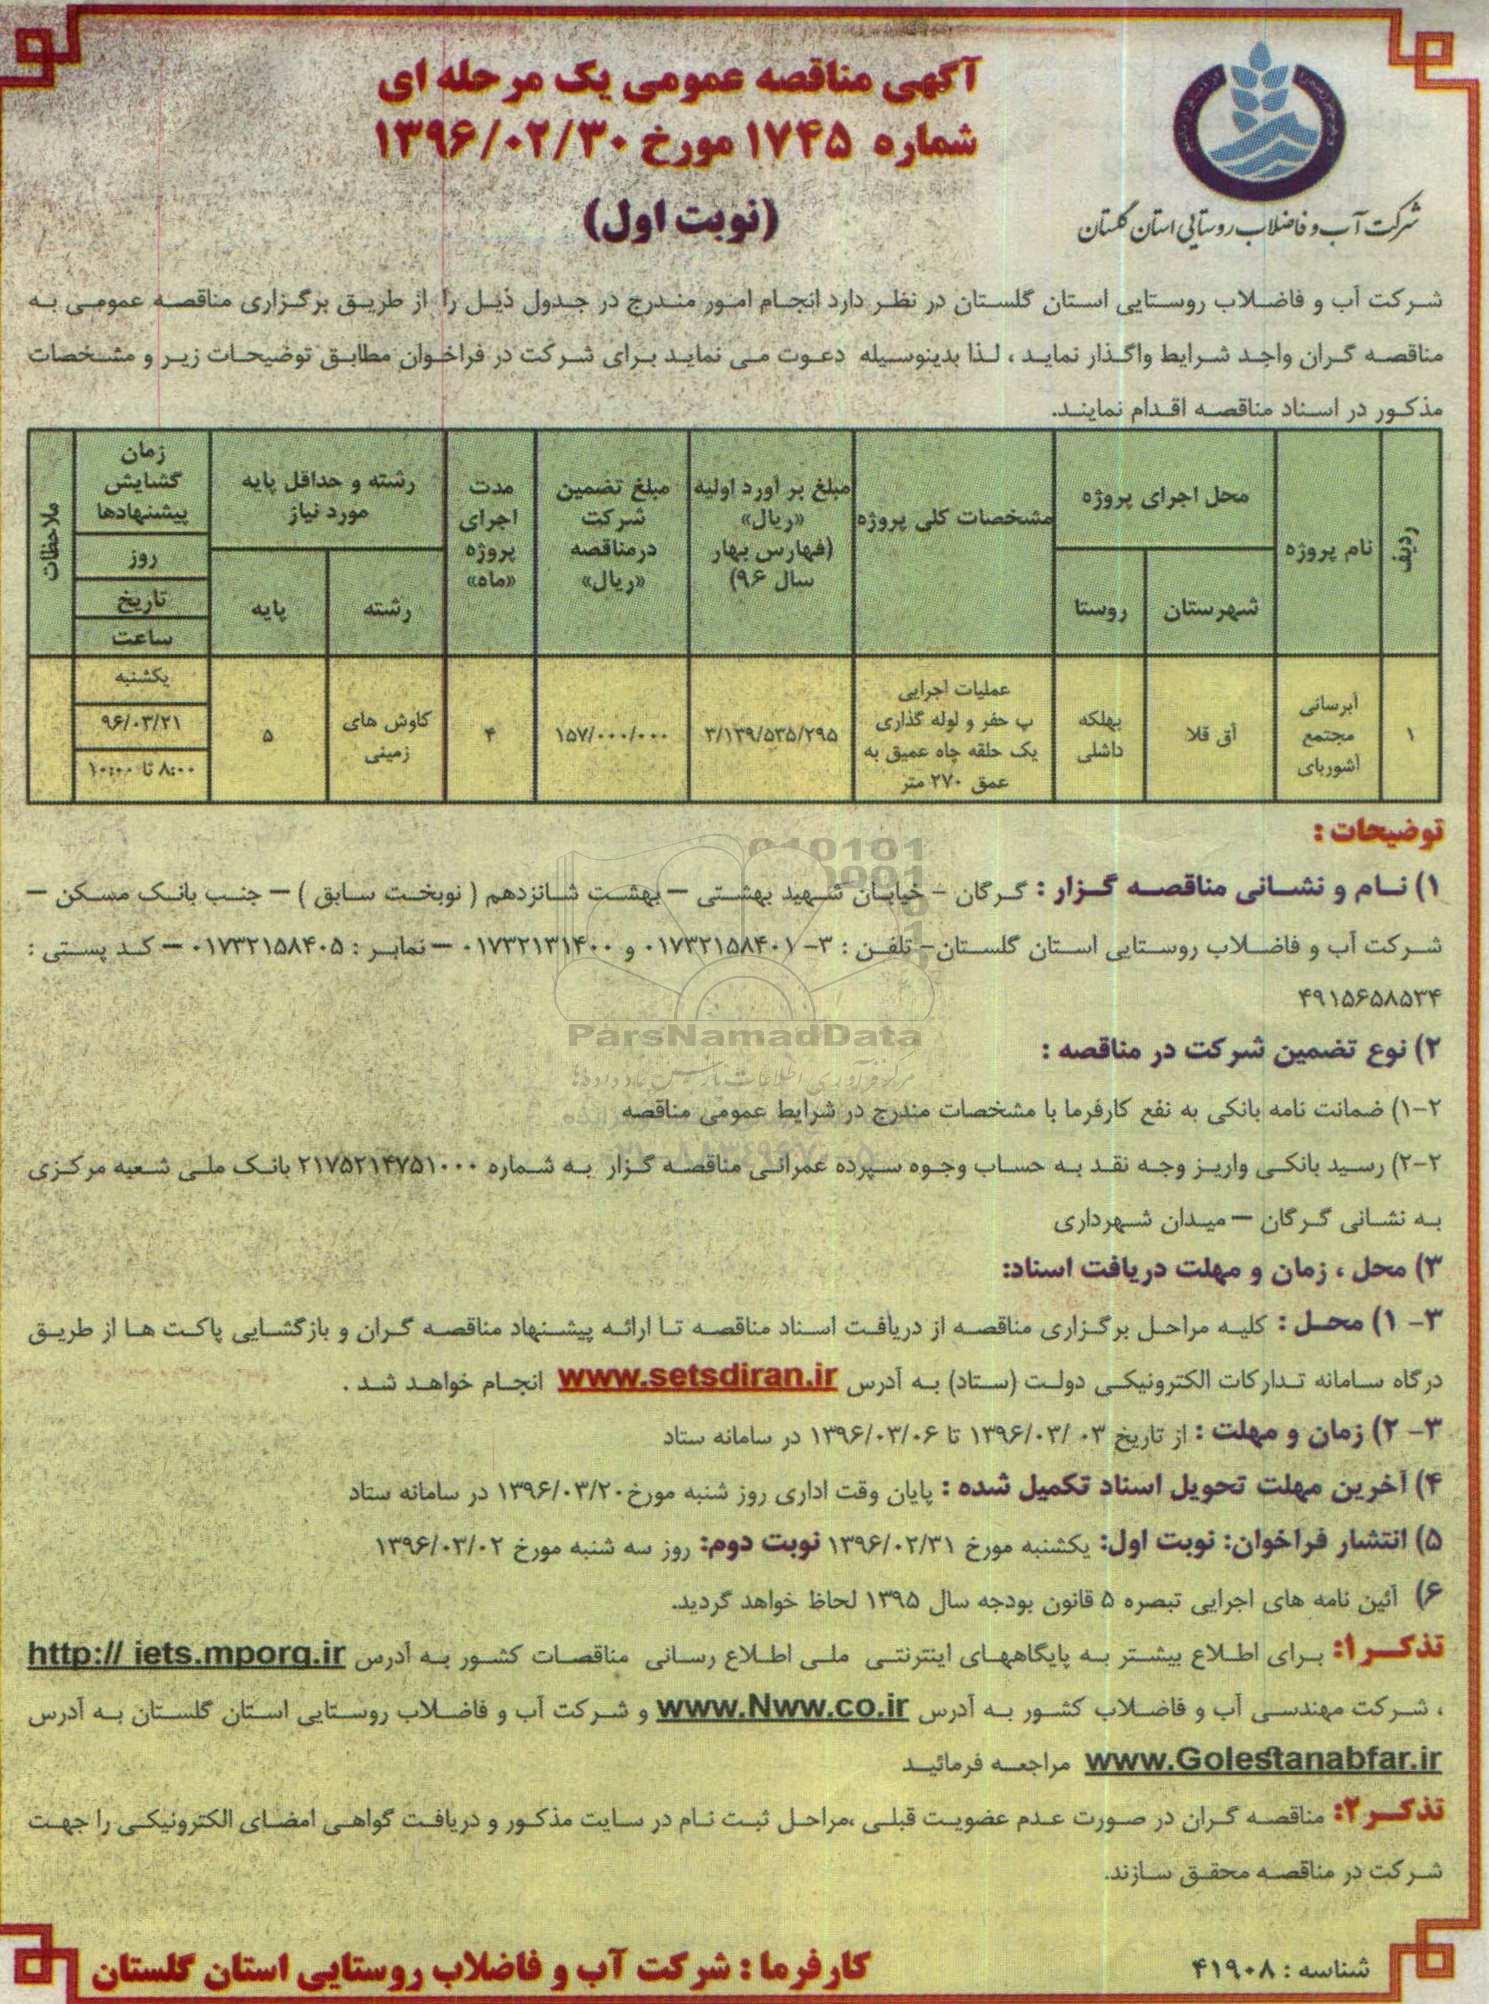 آگهی مناقصه عمومی یک مرحله ای
شماره ۱۷۴۵ مورخ ۱۳۹۶/۰۲/۳۰
(نوبت اول)
شرکت آب و فاضلاب روستایی استان گلستان
شرکت آب و فاضلاب روستایی استان گلستان در نظر دارد انجام امور مندرج در جدول ذیل را از طریق برگزاری مناقصه عمومی به
مناقصه گران واجد شرایط واگذار نماید ، لذا بدینوسیله دعوت می نماید برای شرکت در فراخوان مطابق توضیحات زیر و مشخصات
مذکور در اسناد مناقصه اقدام نمایند.
ردیف
نام پروژه
محل اجرای پروژه
شهرستان
روستا
مشخصات کلی پروژه
مبلغ بر آورد اولیه
«ریال»
(فهارس بهار
سال ۹۶)
مبلغ تضمین
شرکت
درمناقصه
«ریال»
مدت
اجرای
پروژه
«ماه»
رشته و حداقل پایه
مورد نیاز
رشته
پایه
زمان
گشایش
پیشنهادها
روز
تاریخ
ساعت
ملاحظات
۱
آبرسانی
مجتمع
آشوربای
آق قلا
بهلکه
داشلی
عملیات اجرایی
پ حفر و لوله گذاری
یک حلقه چاه عمیق به
عمق ۲۷۰ متر
۳/۱۳۹/۵۳۵/۲۹۵
۱۵۷/۰۰۰/۰۰۰
۴
کاوش های
زمینی
۵
یکشنبه
۹۶/۰۳/۲۱
۸:۰۰ تا ۱۰:۰۰
توضیحات :
۱) نام و نشانی مناقصه گزار : گرگان – خیابان شهید بهشتی – بهشت شانزدهم ( نوبخت سابق ) – جنب بانک مسکن –
شرکت آب و فاضلاب روستایی استان گلستان- تلفن : ۳- ۰۱۷۳۲۱۵۸۴۰۱ و ۰۱۷۳۲۱۳۱۴۰۰ – نمابر : ۰۱۷۳۲۱۵۸۴۰۵ – کد پستی :
۴۹۱۵۶۵۸۵۳۴
ParsNamadData
۲) نوع تضمین شرکت در مناقصه :
۲-۱) ضمانت نامه بانکی به نفع کارفرما با مشخصات مندرج در شرایط عمومی مناقصه
۲-۲) رسید بانکی واریز وجه نقد به حساب وجوه سپرده عمرانی مناقصه گزار به شماره ۲۱۷۵۲۱۴۷۵۱۰۰۰ بانک ملی شعبه مرکزی
به نشانی گرگان – میدان شهرداری
۳) محل ، زمان و مهلت دریافت اسناد:
۳- ۱) محل : کلیه مراحل برگزاری مناقصه از دریافت اسناد مناقصه تا ارائه پیشنهاد مناقصه گران و بازگشایی پاکت ها از طریق
درگاه سامانه تدارکات الکترونیکی دولت (ستاد) به آدرس www.setsdiran.ir انجام خواهد شد .
۳- ۲) زمان و مهلت : از تاریخ ۰۳ /۱۳۹۶/۰۳ تا ۱۳۹۶/۰۳/۰۶ در سامانه ستاد
۴) آخرین مهلت تحویل اسناد تکمیل شده : پایان وقت اداری روز شنبه مورخ۱۳۹۶/۰۳/۲۰ در سامانه ستاد
۵) انتشار فراخوان: نوبت اول: یکشنبه مورخ ۱۳۹۶/۰۲/۳۱ نوبت دوم: روز سه شنبه مورخ ۱۳۹۶/۰۳/۰۲
۶) آئین نامه های اجرایی تبصره ۵ قانون بودجه سال ۱۳۹۵ لحاظ خواهد گردید.
تذکر۱: برای اطلاع بیشتر به پایگاههای اینترنتی ملی اطلاع رسانی مناقصات کشور به آدرس http:// iets.mporg.ir
، شرکت مهندسی آب و فاضلاب کشور به آدرس www.Nww.co.ir و شرکت آب و فاضلاب روستایی استان گلستان به آدرس
www.Golestanabfar.ir مراجعه فرمائید
تذکر۲: مناقصه گران در صورت عدم عضویت قبلی ،مراحل ثبت نام در سایت مذکور و دریافت گواهی امضای الکترونیکی را جهت
شرکت در مناقصه محقق سازند.
شناسه : ۴۱۹۰۸
کارفرما : شرکت آب و فاضلاب روستایی استان گلستان